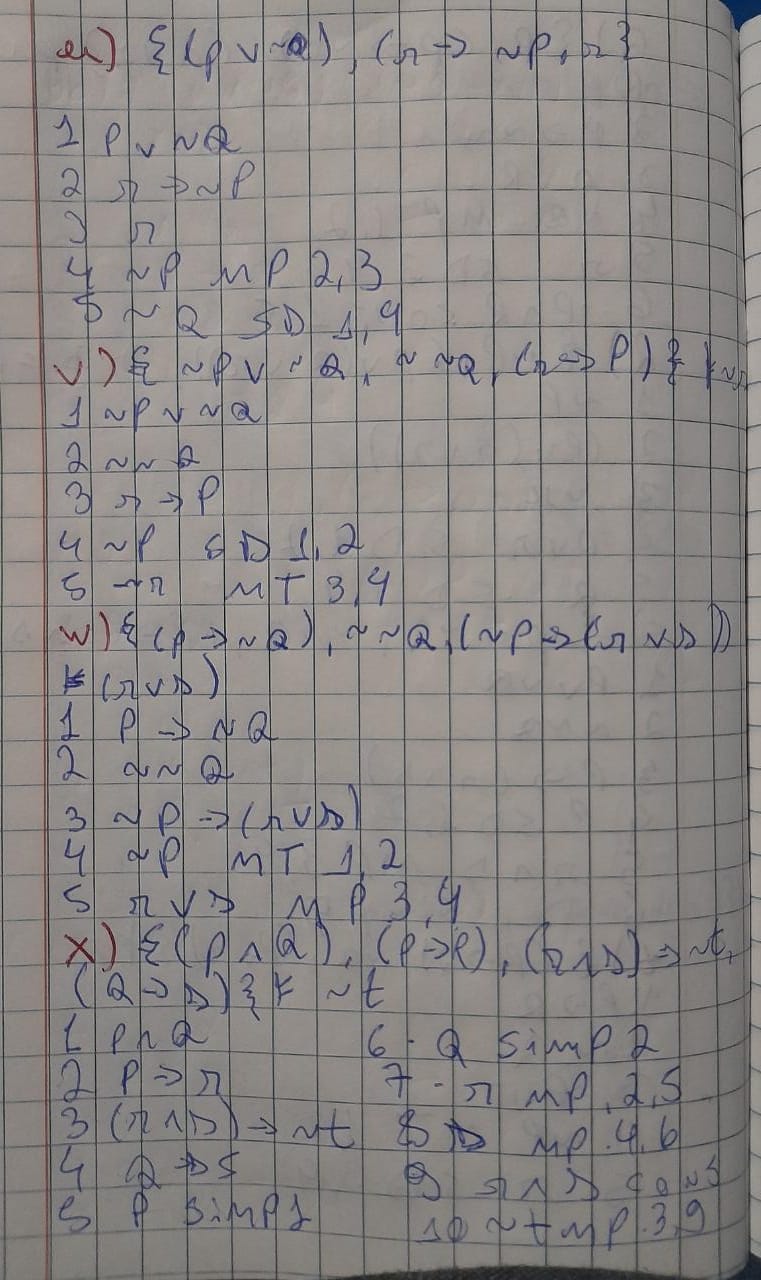 u) {(p ∨ ~Q), (r → ~P, r}
1 P ∨ ~Q
2 r → ~P
3 r
4 ~P MP 2,3
5 ~Q SD 1,4
v) { ~P ∨ ~Q, ~~Q, (r → P) } ⊢ ~r
1 ~P ∨ ~Q
2 ~~Q
3 r → P
4 ~P SD 1,2
5 ~r MT 3,4
w) {(P → ~Q), ~~Q, (~P → (r ∨ s))
⊢ (r ∨ s)
1 P → ~Q
2 ~~Q
3 ~P → (r ∨ s)
4 ~P MT 1,2
5 r ∨ s MP 3,4
x) {(P ∧ Q), (P → R), (r ∧ s) → ~t,
(Q → s)} ⊢ ~t
1 P ∧ Q
2 P → r
3 (r ∧ s) → ~t
4 Q → s
5 P Simp 1
6. Q Simp 2
7. r MP. 2,5
8 s MP. 4,6
9 r ∧ s Conj
10 ~t MP. 3,9